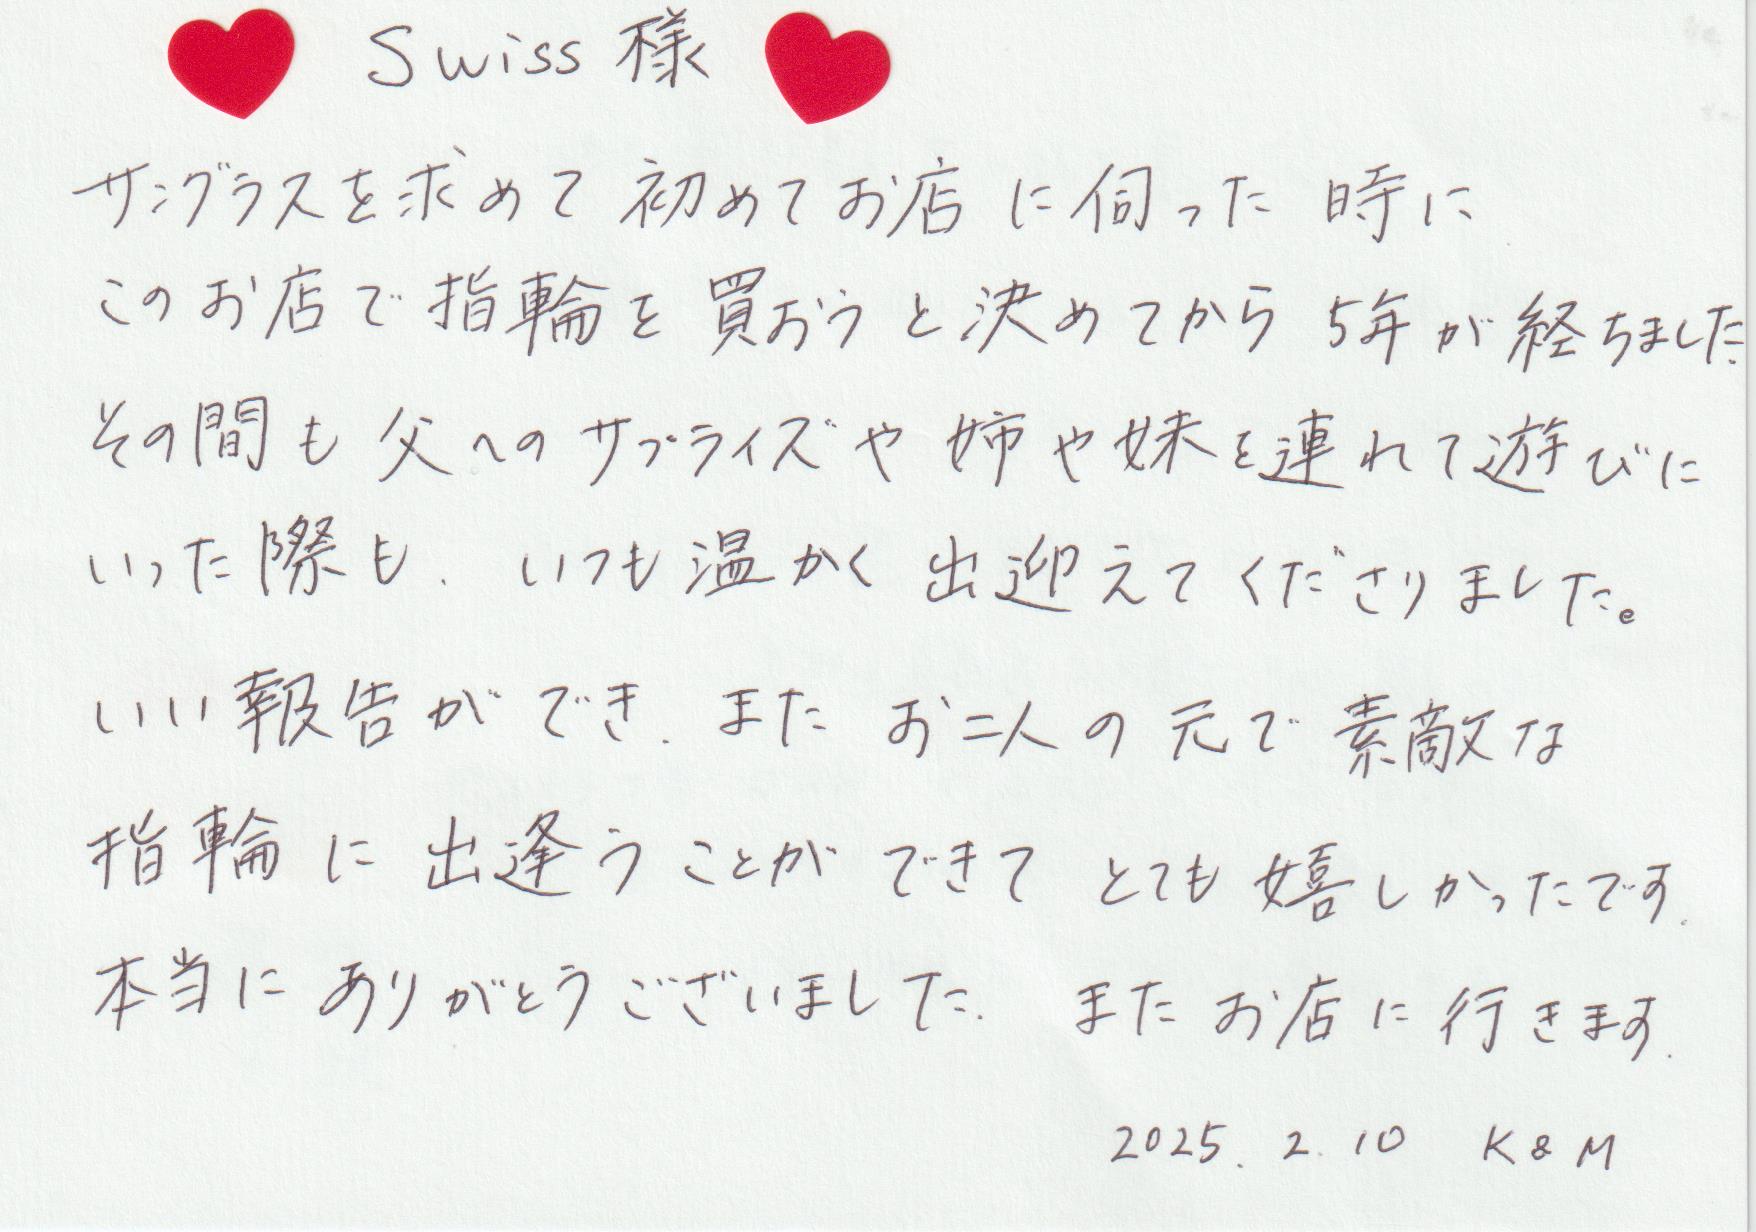 Swiss 様
サングラスを求めて初めてお店に伺った時に
このお店で指輪を買おうと決めてから5年が経ちました.
その間も父へのサプライズや姉や妹を連れて遊びに
いった際も、いつも温かく出迎えてくださりました。
いい報告ができ、またお二人の元で素敵な
指輪に出逢うことができてとても嬉しかったです.
本当にありがとうございました. またお店に行きます.
2025. 2. 10 K & M